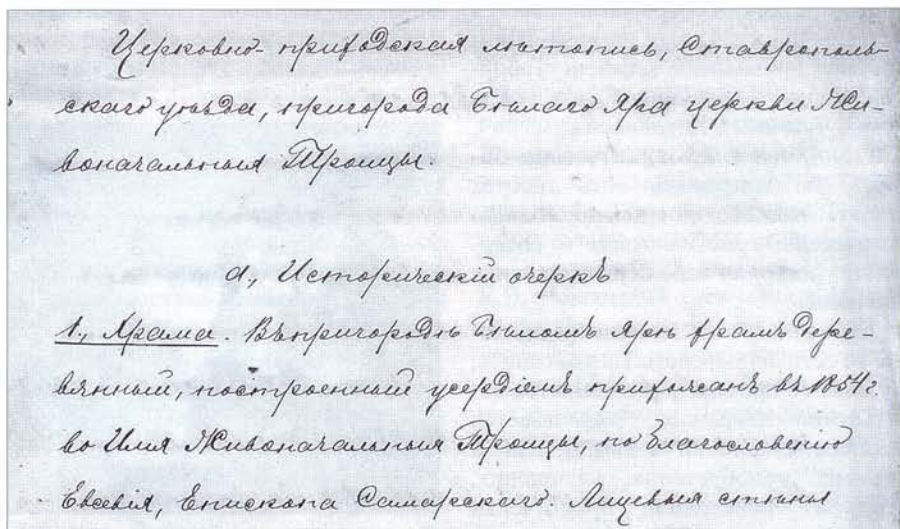 Церковно-приходская лѣтопись, Ставрополь-
скаго уѣзда, пригорода Бѣлаго Яра церкви Жи-
воначальныя Троицы.
а., Историческій очеркъ
1., Храма. Въ пригородѣ Бѣломъ Ярѣ храмъ дере-
вянный, построенный усердіемъ прихожанъ въ 1854 г.
во Имя Живоначальныя Троицы, по благословенію
Евсевія, Епископа Самарскаго. Лицевыя стѣны